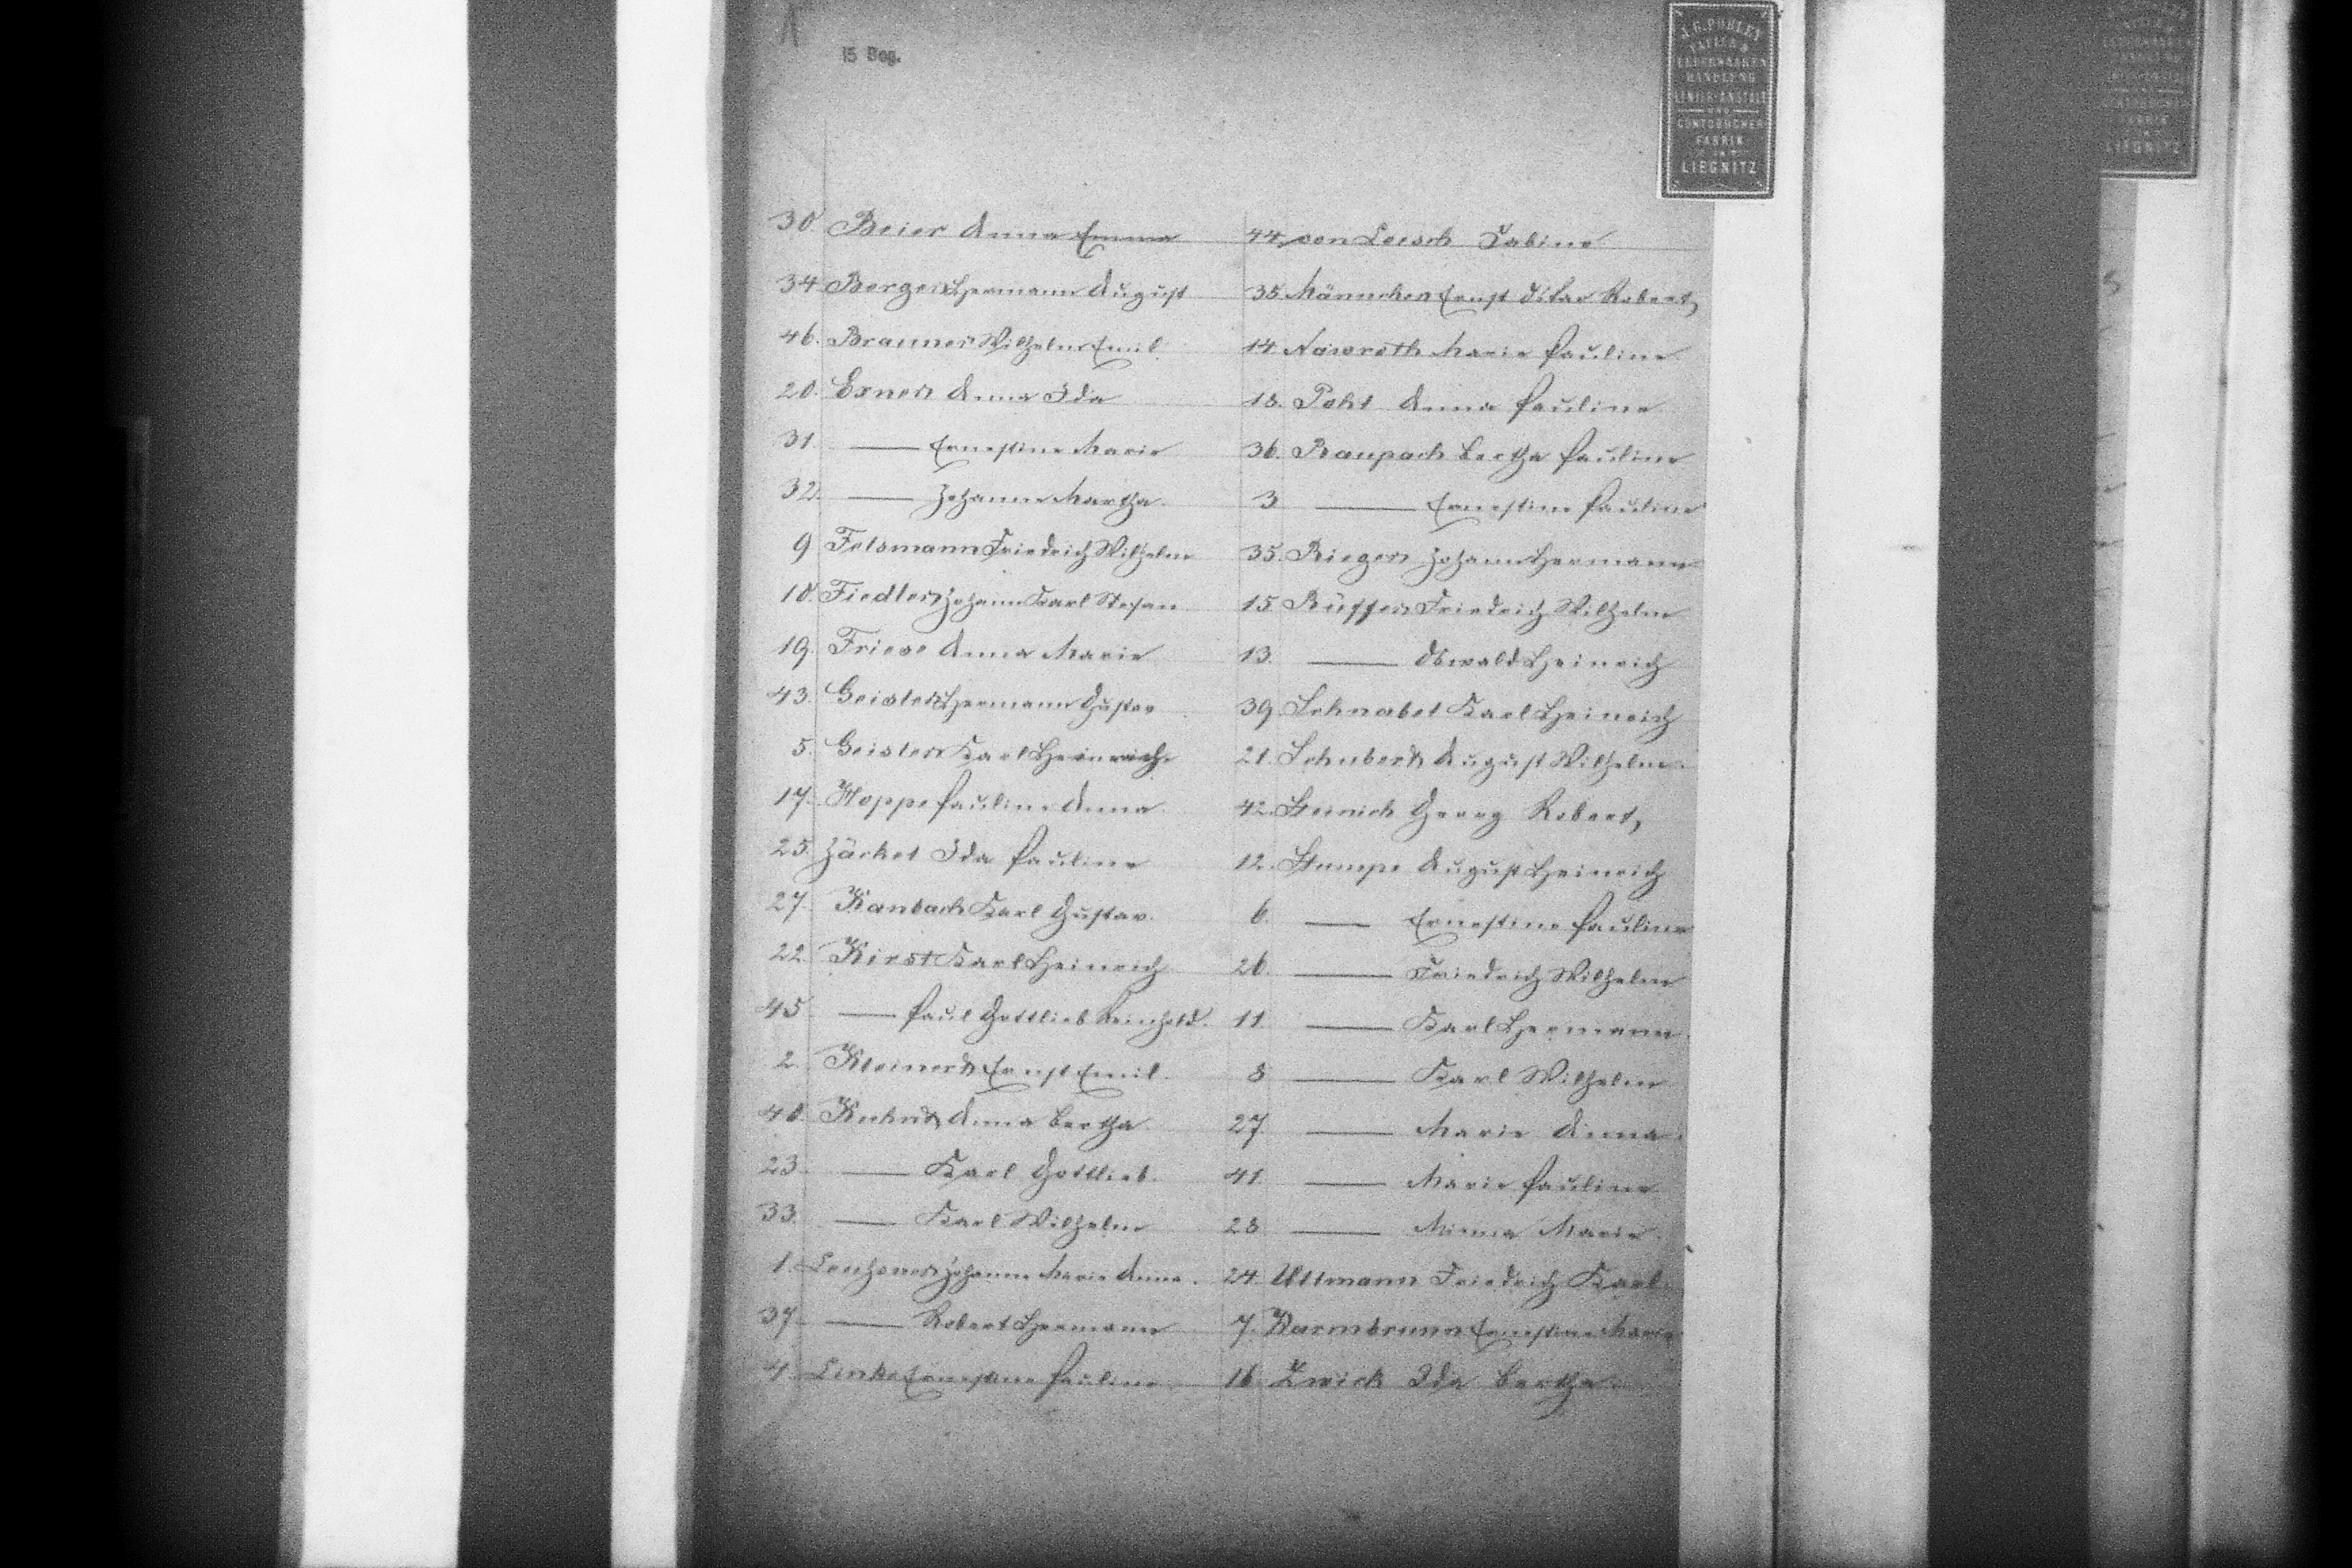 15 Bog.
J. G. POHLEY
PAPIER &
LEDERWAAREN
HANDLUNG
LINIIR-ANSTALT
UND
CONTOBÜCHER
FABRIK
IN
LIEGNITZ
30. Beier Anna Emma
34. Berger Hermann August
46. Brauner Wilhelm Emil
20. Exner Anna Ida
31. —— Ernestine Marie
32. —— Johanne Martha.
9 Felsmann Friedrich Wilhelm
10. Fiedler Johann Karl Stefan
19. Friese Anna Marie
43. Geisler Hermann Gustav
5. Geisler Karl Heinrich
17. Hoppe Pauline Anna
25. Jäckel Ida Pauline
27. Kanbach Karl Gustav.
22. Kirst Karl Heinrich
45 —— Paul Gottlieb Reinhold.
2. Kleinert Ernst Emil.
40. Kuhnt Anna Bertha
23. —— Karl Gottlieb.
33. —— Karl Wilhelm
1. Johanne Marie Anna.
37 —— Robert Hermann
4. Linke Ernestine Pauline
44. von Loesch Sabine
35. Männchen Ernst Robert,
14. Nawroth Marie Pauline
18. Pohl Anna Pauline
36. Raupach Bertha Pauline
3 —— Ernestine Pauline
35. Rieger Johann Hermann
15. Rüffer Friedrich Wilhelm
13. —— Oswald Heinrich
39. Schnabel Karl Heinrich
21. Schubert August Wilhelm.
42. Steinich Georg Robert,
12. Stumpe August Heinrich
6. —— Ernestine Pauline
26. —— Friedrich Wilhelm
11. —— Karl Hermann.
8 —— Karl Wilhelm
27. —— Marie Anna.
41. —— Marie Pauline
28. —— Minna Marie.
24. Ullmann Friedrich Karl.
7. Warmbrunn Ernestine Marie
16. Zwick Ida Bertha.